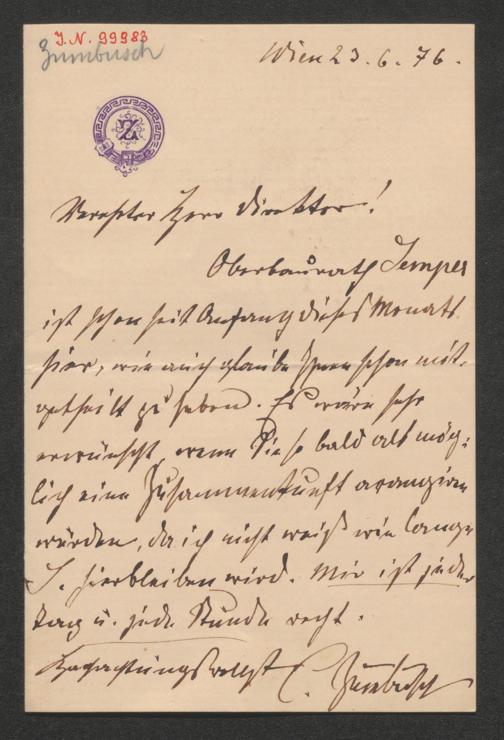 J.N. 99983
Zumbusch
Wien 23.6.76.
Z
Verehrter Herr Direktor!
Oberbaurath Semper
ist schon seit Anfang dieses Monats
hier, wie auch glaube Ihnen schon mit-
getheilt zu haben. Es wäre sehr
erwünscht, wenn Sie so bald als mög-
lich eine Zusammenkunft arangiren
würden, da ich nicht weiß wie lange
S. hierbleiben wird. Mir ist jeder
Tag u. jede Stunde recht.
Hochachtungsvollst C. Zumbusch